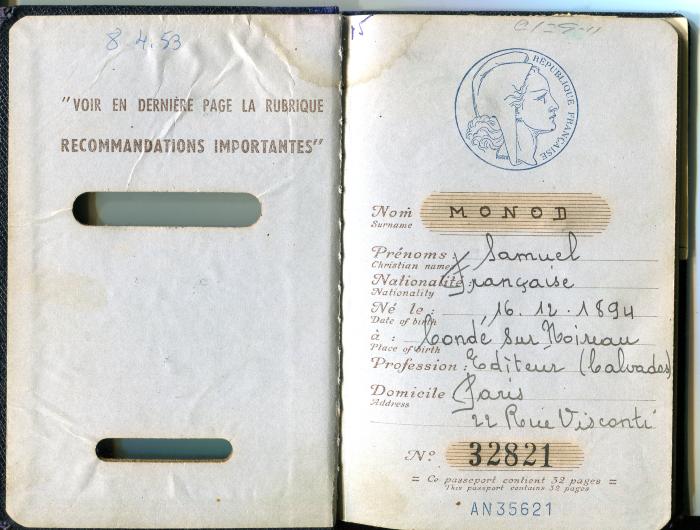 8.4.53
"VOIR EN DERNIÈRE PAGE LA RUBRIQUE
RECOMMANDATIONS IMPORTANTES"
15
RÉPUBLIQUE FRANÇAISE
Nom MONOD
Surname
Prénoms Samuel
Christian name
Nationalité: Française
Nationality
Né le : 16.12.1894
Date of birth
à : Condé sur Noireau
Place of birth
Profession : Editeur (Calvados)
Domicile Paris
Address
22 Rue Visconti
Nº 32821
= Ce passeport contient 32 pages =
This passport contains 32 pages
AN35621